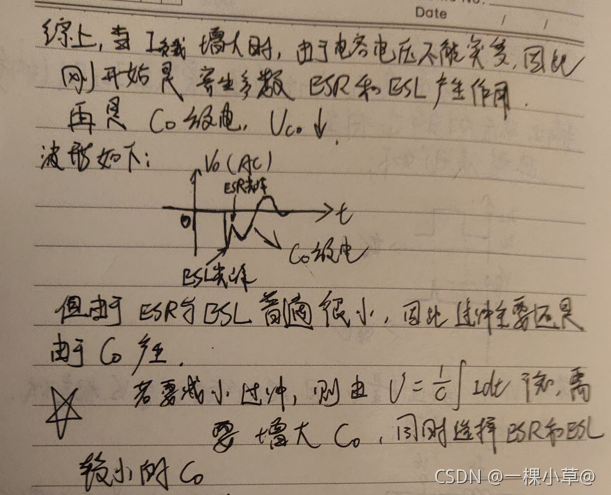 Date / /
综上,当 I负载 增大时,由于电容电压不能突变,因此
刚开始是 寄生参数 ESR和ESL产生作用.
再是 Co放电,Uco↓.
波形如下:
Vo(AC)
ESR
0
t
Co放电
ESL
但由于 ESR与ESL 普遍很小,因此过冲主要还是
由于 Co 产生.
若要减小过冲,则由 U=1/C∫Idt 可知,需
要 增大 Co,同时选择 ESR和ESL
较小的 Co
CSDN @一棵小草@